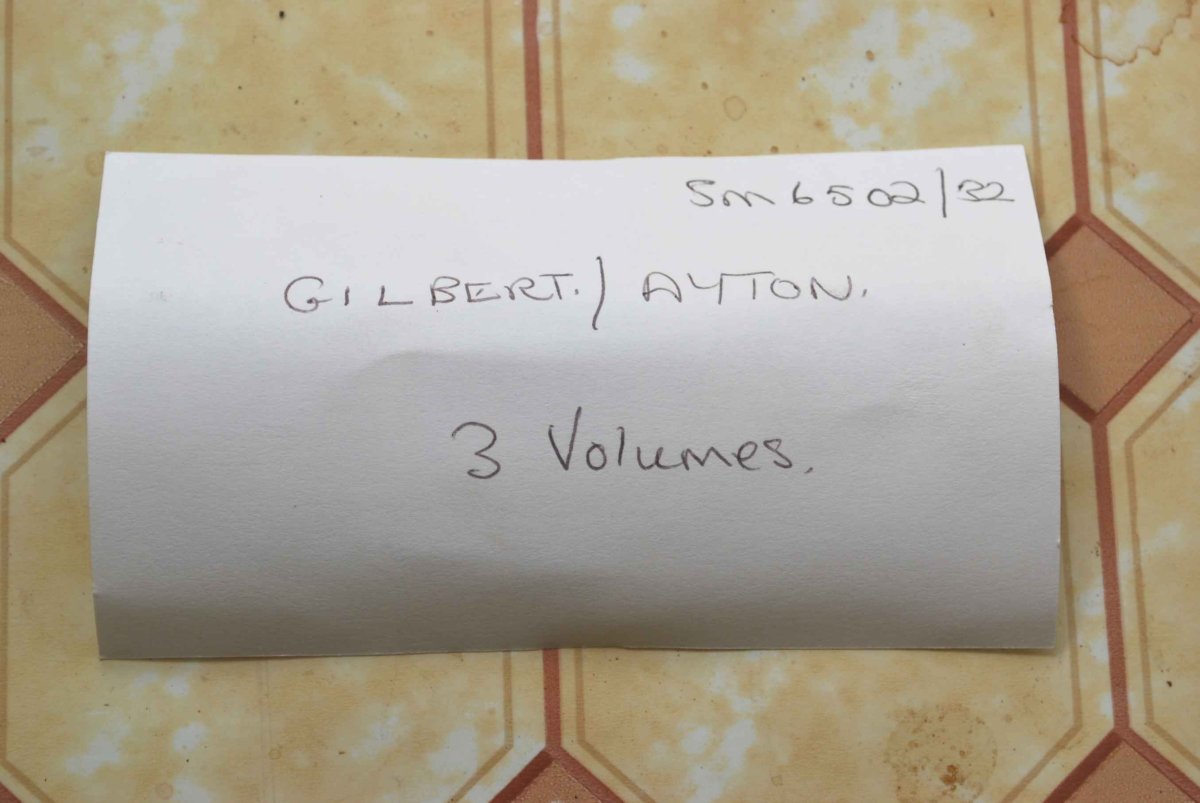 Sm 6502/32
GILBERT./ AYTON.
3 Volumes.